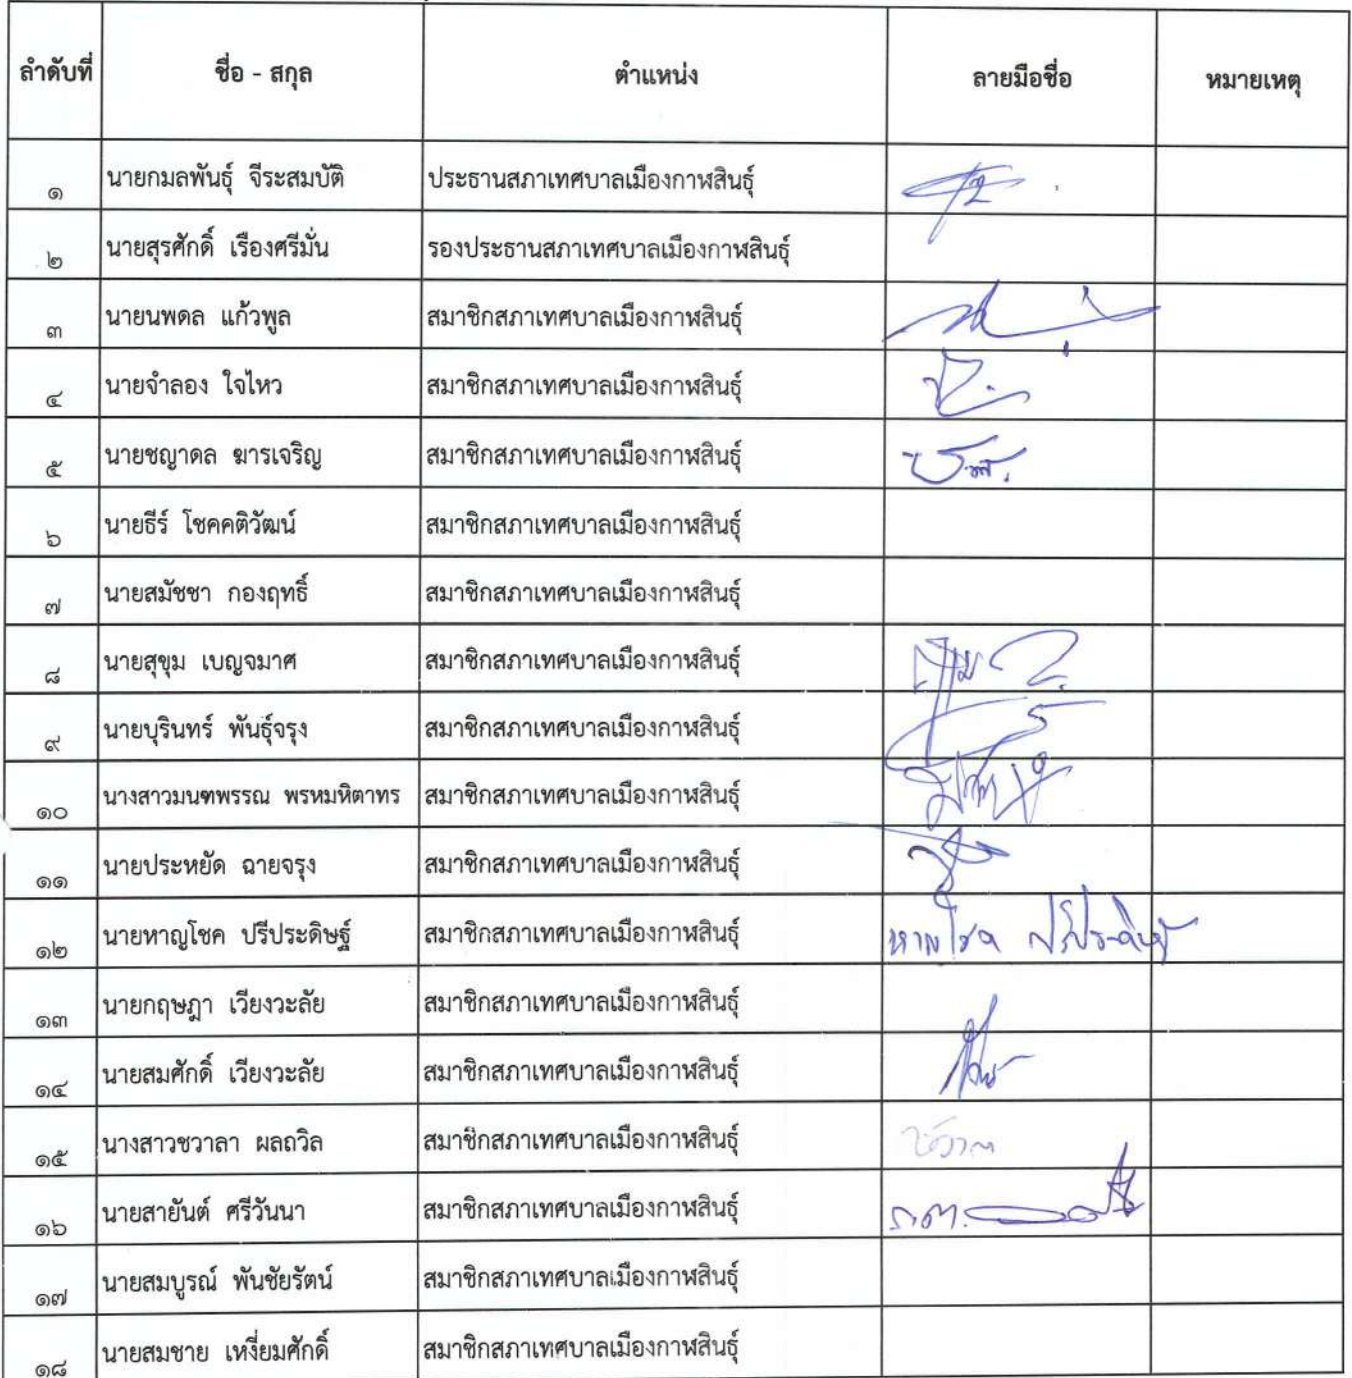 ลำดับที่ ชื่อ - สกุล ตำแหน่ง ลายมือชื่อ หมายเหตุ
๑ นายกมลพันธุ์ จีระสมบัติ ประธานสภาเทศบาลเมืองกาฬสินธุ์
๒ นายสุรศักดิ์ เรืองศรีมั่น รองประธานสภาเทศบาลเมืองกาฬสินธุ์
๓ นายนพดล แก้วพูล สมาชิกสภาเทศบาลเมืองกาฬสินธุ์
๔ นายจำลอง ใจไหว สมาชิกสภาเทศบาลเมืองกาฬสินธุ์
๕ นายชญาดล ฆารเจริญ สมาชิกสภาเทศบาลเมืองกาฬสินธุ์
๖ นายธีร์ โชคคติวัฒน์ สมาชิกสภาเทศบาลเมืองกาฬสินธุ์
๗ นายสมัชชา กองฤทธิ์ สมาชิกสภาเทศบาลเมืองกาฬสินธุ์
๘ นายสุขุม เบญจมาศ สมาชิกสภาเทศบาลเมืองกาฬสินธุ์
๙ นายบุรินทร์ พันธุ์จรุง สมาชิกสภาเทศบาลเมืองกาฬสินธุ์
๑๐ นางสาวมนฑพรรณ พรหมหิตาทร สมาชิกสภาเทศบาลเมืองกาฬสินธุ์
๑๑ นายประหยัด ฉายจรุง สมาชิกสภาเทศบาลเมืองกาฬสินธุ์
๑๒ นายหาญโชค ปรีประดิษฐ์ สมาชิกสภาเทศบาลเมืองกาฬสินธุ์ หาญโชค ปรีประดิษฐ์
๑๓ นายกฤษฎา เวียงวะลัย สมาชิกสภาเทศบาลเมืองกาฬสินธุ์
๑๔ นายสมศักดิ์ เวียงวะลัย สมาชิกสภาเทศบาลเมืองกาฬสินธุ์
๑๕ นางสาวชวาลา ผลถวิล สมาชิกสภาเทศบาลเมืองกาฬสินธุ์ ชวาลา
๑๖ นายสายันต์ ศรีวันนา สมาชิกสภาเทศบาลเมืองกาฬสินธุ์
๑๗ นายสมบูรณ์ พันชัยรัตน์ สมาชิกสภาเทศบาลเมืองกาฬสินธุ์
๑๘ นายสมชาย เหงี่ยมศักดิ์ สมาชิกสภาเทศบาลเมืองกาฬสินธุ์